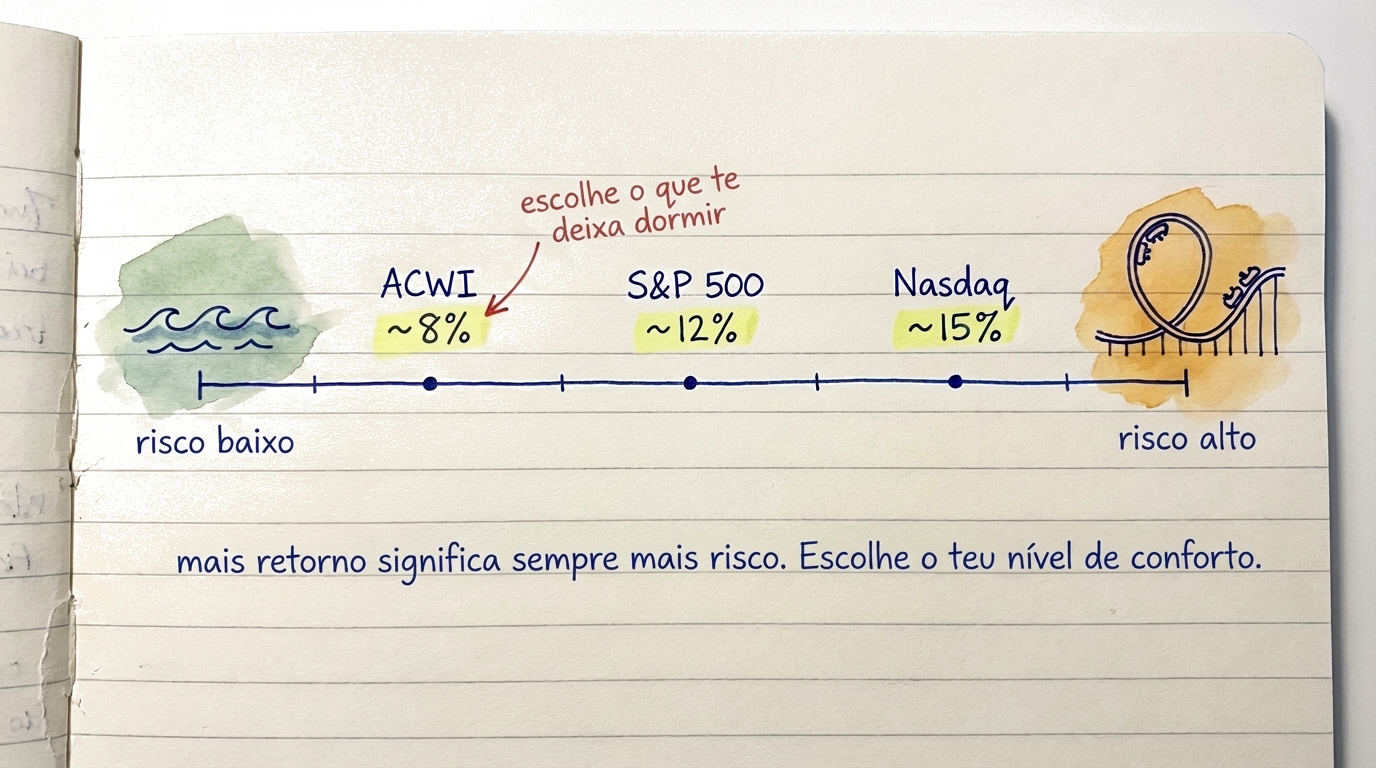 escolhe o que te
deixa dormir
ACWI
~8%
S&P 500
~12%
Nasdaq
~15%
risco baixo
risco alto
mais retorno significa sempre mais risco. Escolhe o teu nível de conforto.